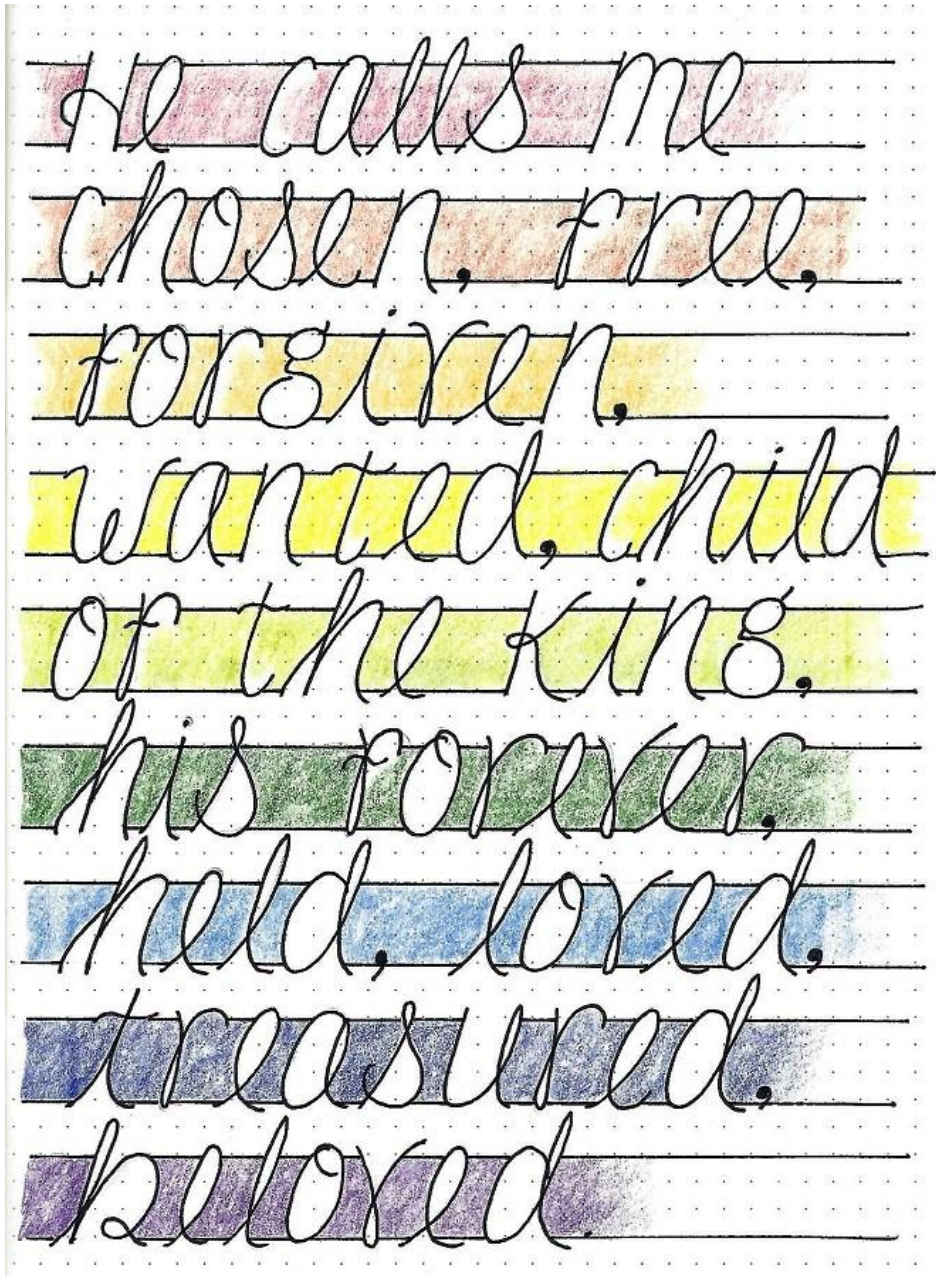 He calls me
chosen, free,
forgiven,
wanted, child
of the King,
his forever,
held, loved,
treasured,
beloved.